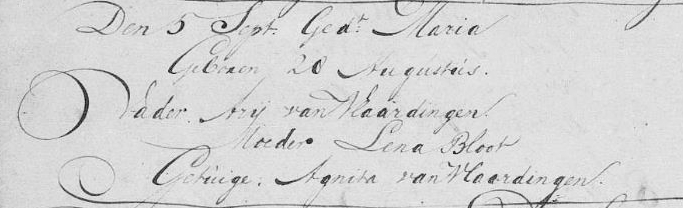 Den 5 Sept. Ged.t Maria
Geboren 28 Augustus.
Vader. Arij van Vlaardingen.
Moeder Lena Bloot
Getuige. Agnita van Vlaardingen.